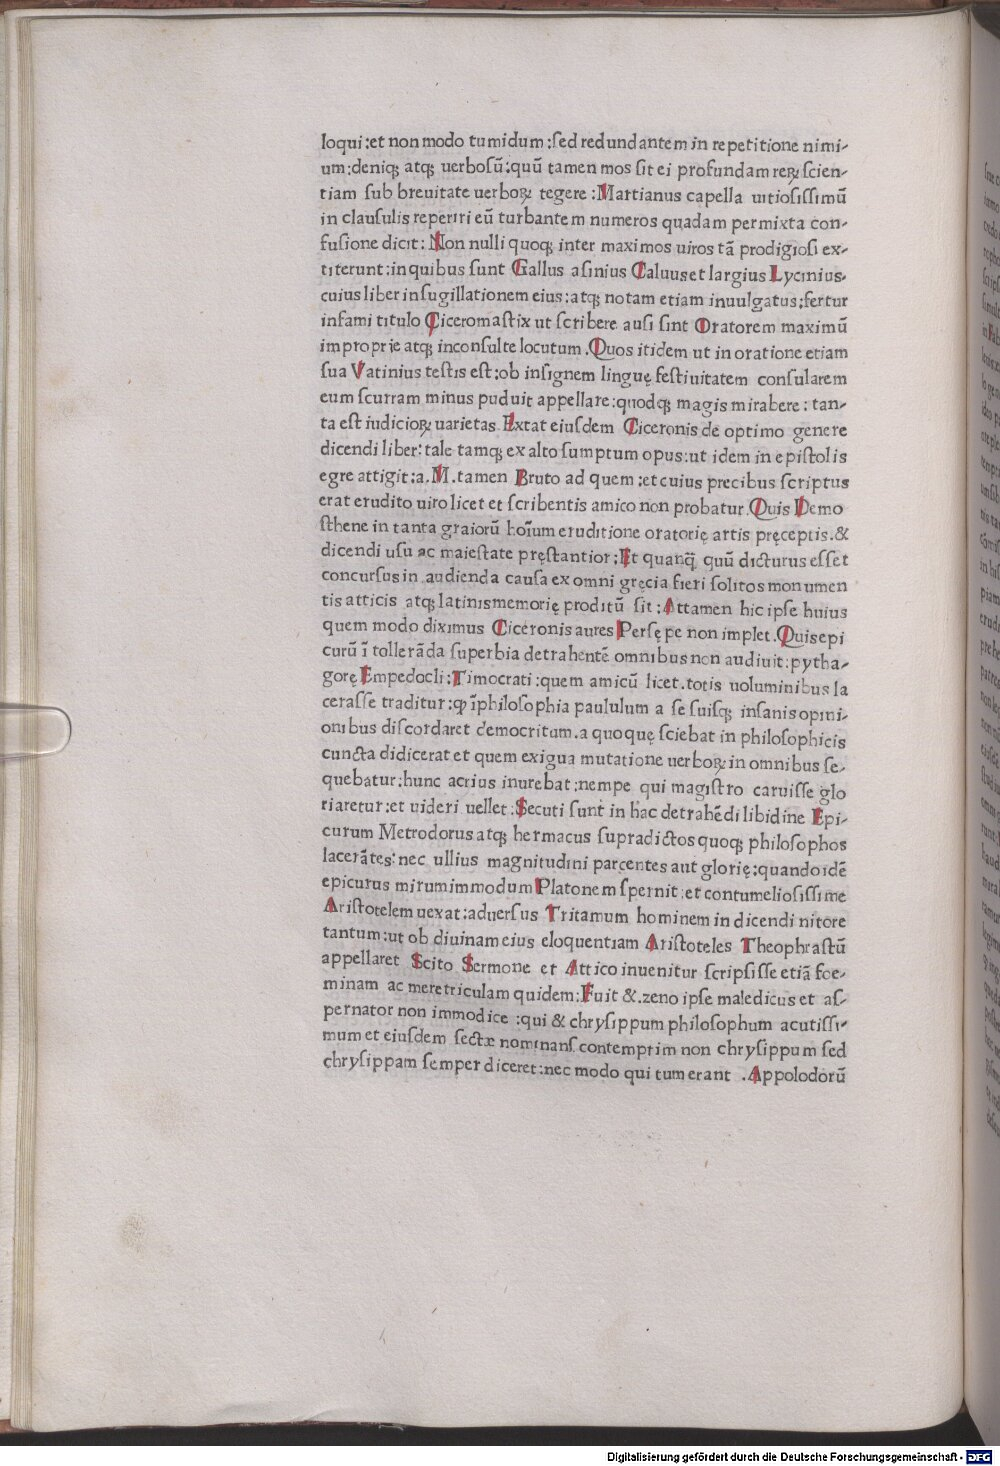 loqui:et non modo tumidum:ſed redundantem in repetitione nimi-
um:deniqꝫ atqꝫ uerboſū:quū tamen mos ſit ei profundam reꝝ ſcien-
tiam ſub breuitate uerboꝝ tegere:Martianus capella uitioſiſſimū
in clauſulis reperiri eū turbantem numeros quadam permixta con-
fuſione dicit: Non nulli quoqꝫ inter maximos uiros tā prodigioſi ex-
titerunt:inquibus ſunt Gallus aſinius Caluuset largius Lycinius.
cuius liber in ſugillationem eius:atqꝫ notam etiam inuulgatus:fertur
infami titulo Ciceromaſtix ut ſcribere auſi ſint Oratorem maximū
improprie atqꝫ inconſulte locutum.Quos itidem ut in oratione etiam
ſua Vatinius teſtis eſt:ob inſignem linguę feſtiuitatem conſularem
eum ſcurram minus puduit appellare:quodqꝫ magis mirabere: tan-
ta eſt iudicioꝝ uarietas.Extat eiuſdem Ciceronis de optimo genere
dicendi liber:tale tamqꝫ ex alto ſumptum opus:ut idem in epiſtolis
egre attigit:a.M.tamen Bruto ad quem:et cuius precibus ſcriptus
erat erudito uiro licet et ſcribentis amico non probatur.Quis Demo
ſthene in tanta graiorū hoīum eruditione oratorię artis pręceptis.&
dicendi uſu ac maieſtate pręſtantior:Et quanq̄ quū dicturus eſſet
concurſus in audienda cauſa ex omni gręcia fieri ſolitos monumen
tis atticis atqꝫ latinis memorię proditū ſit:Attamen hic ipſe huius
quem modo diximus Ciceronis aures Perſępe non implet.Quis epi
curū ī tollerāda ſuperbia detrahentē omnibus non audiuit:pytha-
gorę Empedocli:Timocrati:quem amicū licet.totis uoluminibus la
ceraſſe traditur:ꝙ īphiloſophia paululum a ſe ſuiſqꝫ inſanis opini-
onibus diſcordaret democritum.a quo quę ſciebat in philoſophicis
cuncta didicerat et quem exigua mutatione uerboꝝ in omnibus ſe-
quebatur:hunc acrius inurebat:nempe qui magiſtro caruiſſe glo
riaretur:et uideri uellet:Secuti ſunt in hac detrahēdi libidine Epi-
curum Metrodorus atqꝫ hermacus ſupradictos quoqꝫ philoſophos
lacerātes:nec ullius magnitudini parcentes aut glorię:quando idē
epicurus mirum immodum Platonem ſpernit:et contumelioſiſſime
Ariſtotelem uexat:aduerſus Tritamum hominem in dicendi nitore
tantum:ut ob diuinam eius eloquentiam Ariſtoteles Theophraſtū
appellaret Scito Sermone et Attico inuenitur ſcripſiſſe etiā foe-
minam ac meretriculam quidem:Fuit &.zeno ipſe maledicus et aſ-
pernator non immodice :qui & chryſippum philoſophum acutiſſi-
mum et eiuſdem ſectæ nominanſ contemptim non chryſippum ſed
chryſippam ſemper diceret:nec modo qui tum erant .Appolodorū
Digitalisierung gefördert durch die Deutsche Forschungsgemeinschaft - DFG